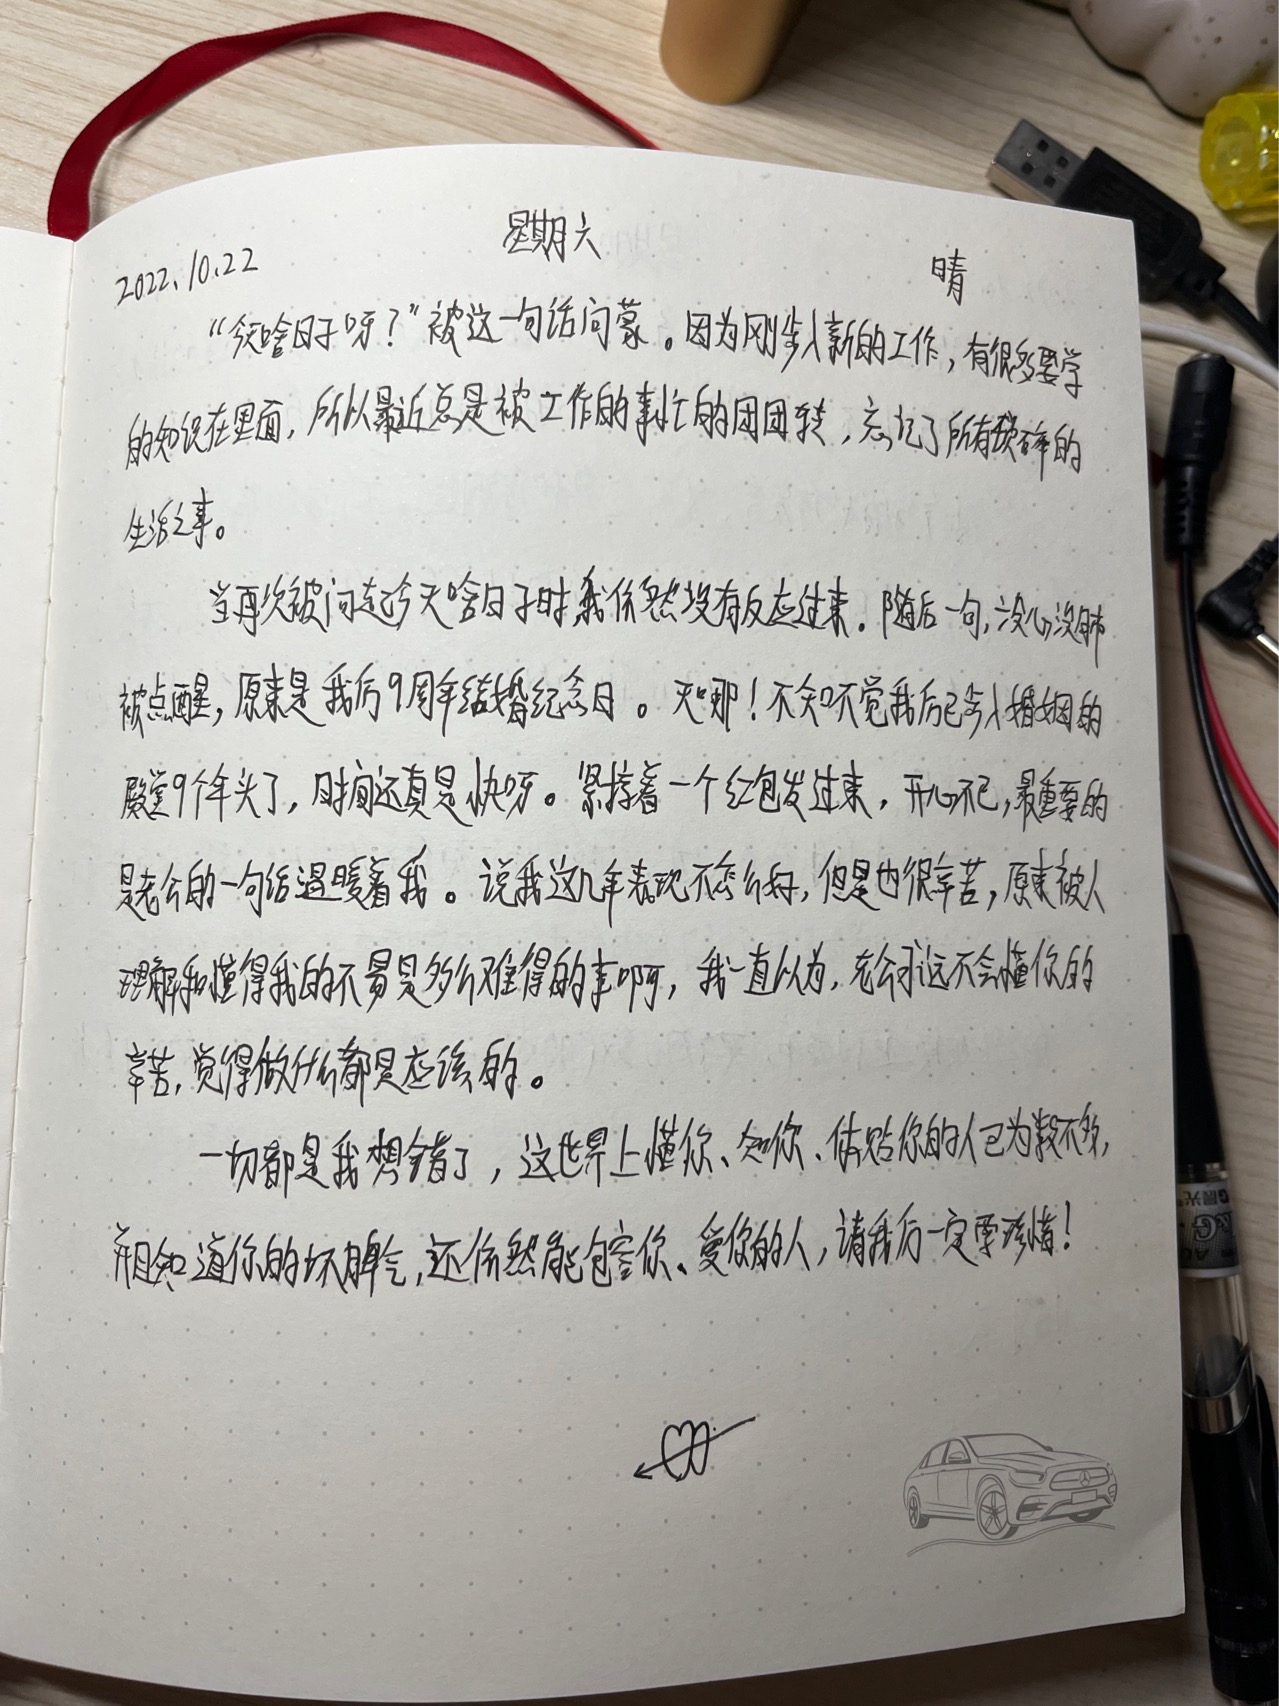 星期六
2022.10.22 晴
“今天啥日子呀？”被这一句话问蒙。因为刚步入新的工作，有很多要学
的知识在里面，所以最近总是被工作的事忙的团团转，忘记了所有琐碎的
生活之事。
当再次被问起今天啥日子时，我依然没有反应过来。随后一句，没心没肺
被点醒，原来是我们9周年结婚纪念日。天哪！不知不觉我们已步入婚姻的
殿堂9个年头了，时间还真是快呀。紧接着一个红包发过来，开心不已，最重要的
是老公的一句话温暖着我。说我这几年表现不怎么好，但是也很辛苦，原来被人
理解和懂得我的不易是多么难得的事啊，我一直以为，老公永远不会懂你的
辛苦，觉得做什么都是应该的。
一切都是我想错了，这世界上懂你、知你、体贴你的人已为数不多，
知道你的坏脾气，还依然能包容你、爱你的人，请我们一定要珍惜！
晨光